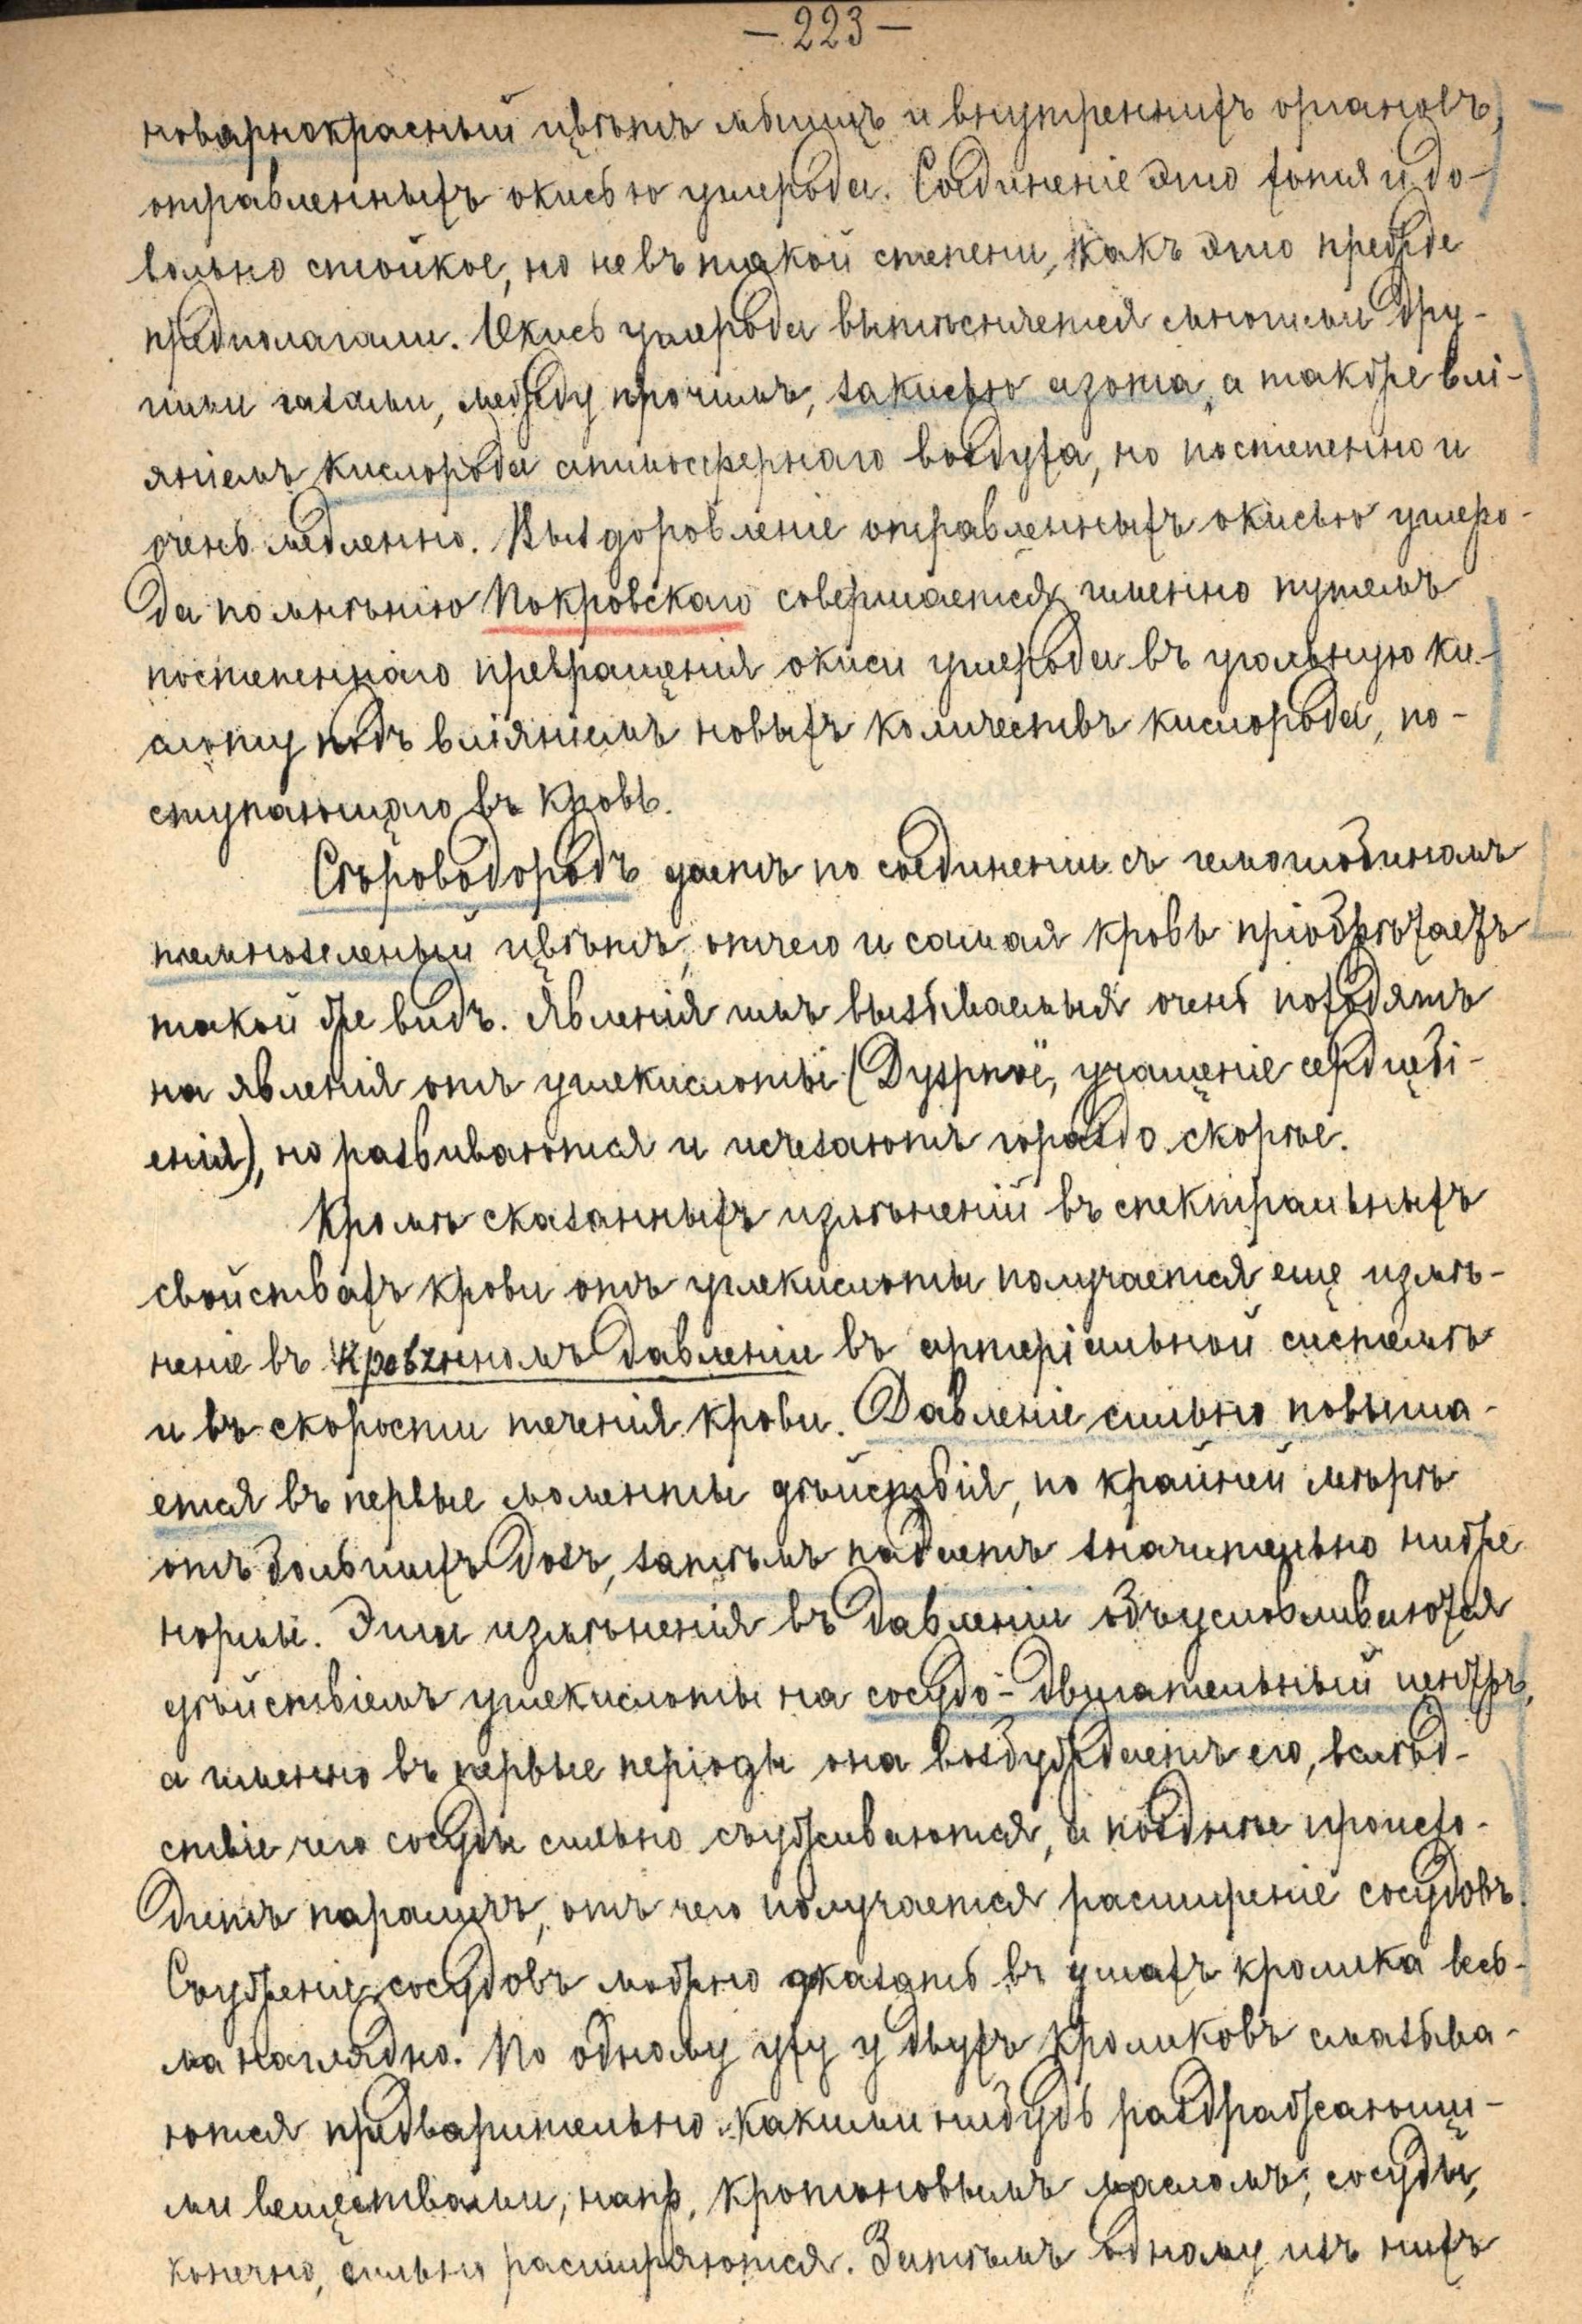 — 223 —
новарнокрасный цвѣтъ мышцъ и внутреннихъ органовъ,
отравленныхъ окисью углерода. Соединеніе это хотя и до-
вольно стойкое, но не въ такой степени, какъ это прежде
предполагали. Окись углерода вытѣсняется многими дру-
гими газами, между прочимъ, закисью азота, а также влі-
яніемъ кислорода атмосфернаго воздуха, но постепенно и
очень медленно. Выздоровленіе отравленныхъ окисью углеро-
да по мнѣнію Покровскаго совершается именно путемъ
постепеннаго превращенія окиси углерода въ угольную ки-
слоту подъ вліяніемъ новыхъ количествъ кислорода, по-
ступающаго въ кровь.
Сѣроводородъ даетъ по соединеніи съ гемоглобиномъ
темнозеленый цвѣтъ, отчего и самая кровь пріобрѣтаетъ
такой же видъ. Явленія имъ вызываемыя очень походятъ
на явленія отъ углекислоты (Dyspnoë, учащеніе сердцебі-
енія), но развиваются и исчезаютъ гораздо скорѣе.
Кромѣ сказанныхъ измѣненій въ спектральныхъ
свойствахъ крови отъ углекислоты получается еще измѣ-
неніе въ кровяномъ давленіи въ артеріальной системѣ
и въ скорости теченія крови. Давленіе сильно повыша-
ется въ первые моменты дѣйствія, по крайней мѣрѣ
отъ большихъ дозъ, затѣмъ падаетъ значительно ниже
нормы. Эти измѣненія въ давленіи объусловливаются
дѣйствіемъ углекислоты на сосудо-двигательный центръ,
а именно въ первые періоды она возбуждаетъ его, вслѣд-
ствіе чего сосуды сильно съуживаются, а позднѣе происхо-
дитъ параличъ, отъ чего получается расширеніе сосудовъ.
Съуженіе сосудовъ можно доказать въ ушахъ кролика весь-
ма наглядно. По одному уху у двухъ кроликовъ смазыва-
ются предварительно какими нибудь раздражающи-
ми веществами, напр. кротоновымъ масломъ; сосуды,
конечно, сильно расширяются. Затѣмъ одному изъ нихъ